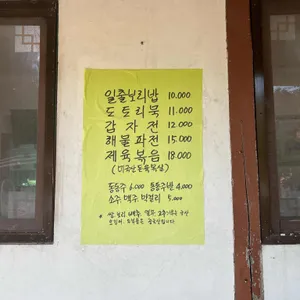 일출보리밥 10.000
도토리묵 11.000
감자전 12.000
해물파전 15.000
제육볶음 18.000
(미국산돈육목살)
동동주 6.000 동동주반 4.000
소주, 맥주, 막걸리 5.000
* 쌀, 보리, 배추,